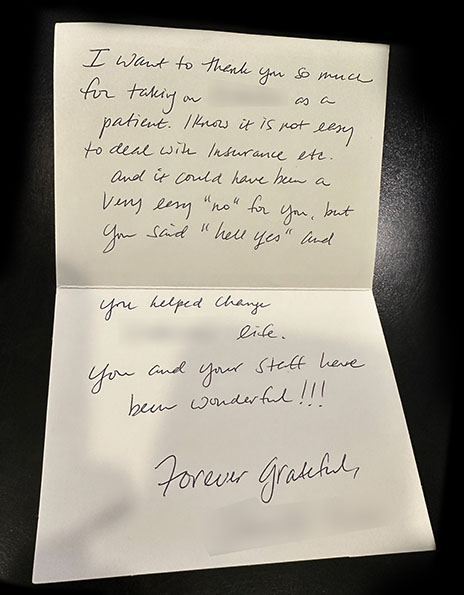 I want to thank you so much
for taking on as a
patient. I know it is not easy
to deal with Insurance etc.
and it could have been a
very easy "no" for you, but
you said "hell yes" and
you helped change
life.
You and your staff have
been wonderful!!!
Forever Grateful,